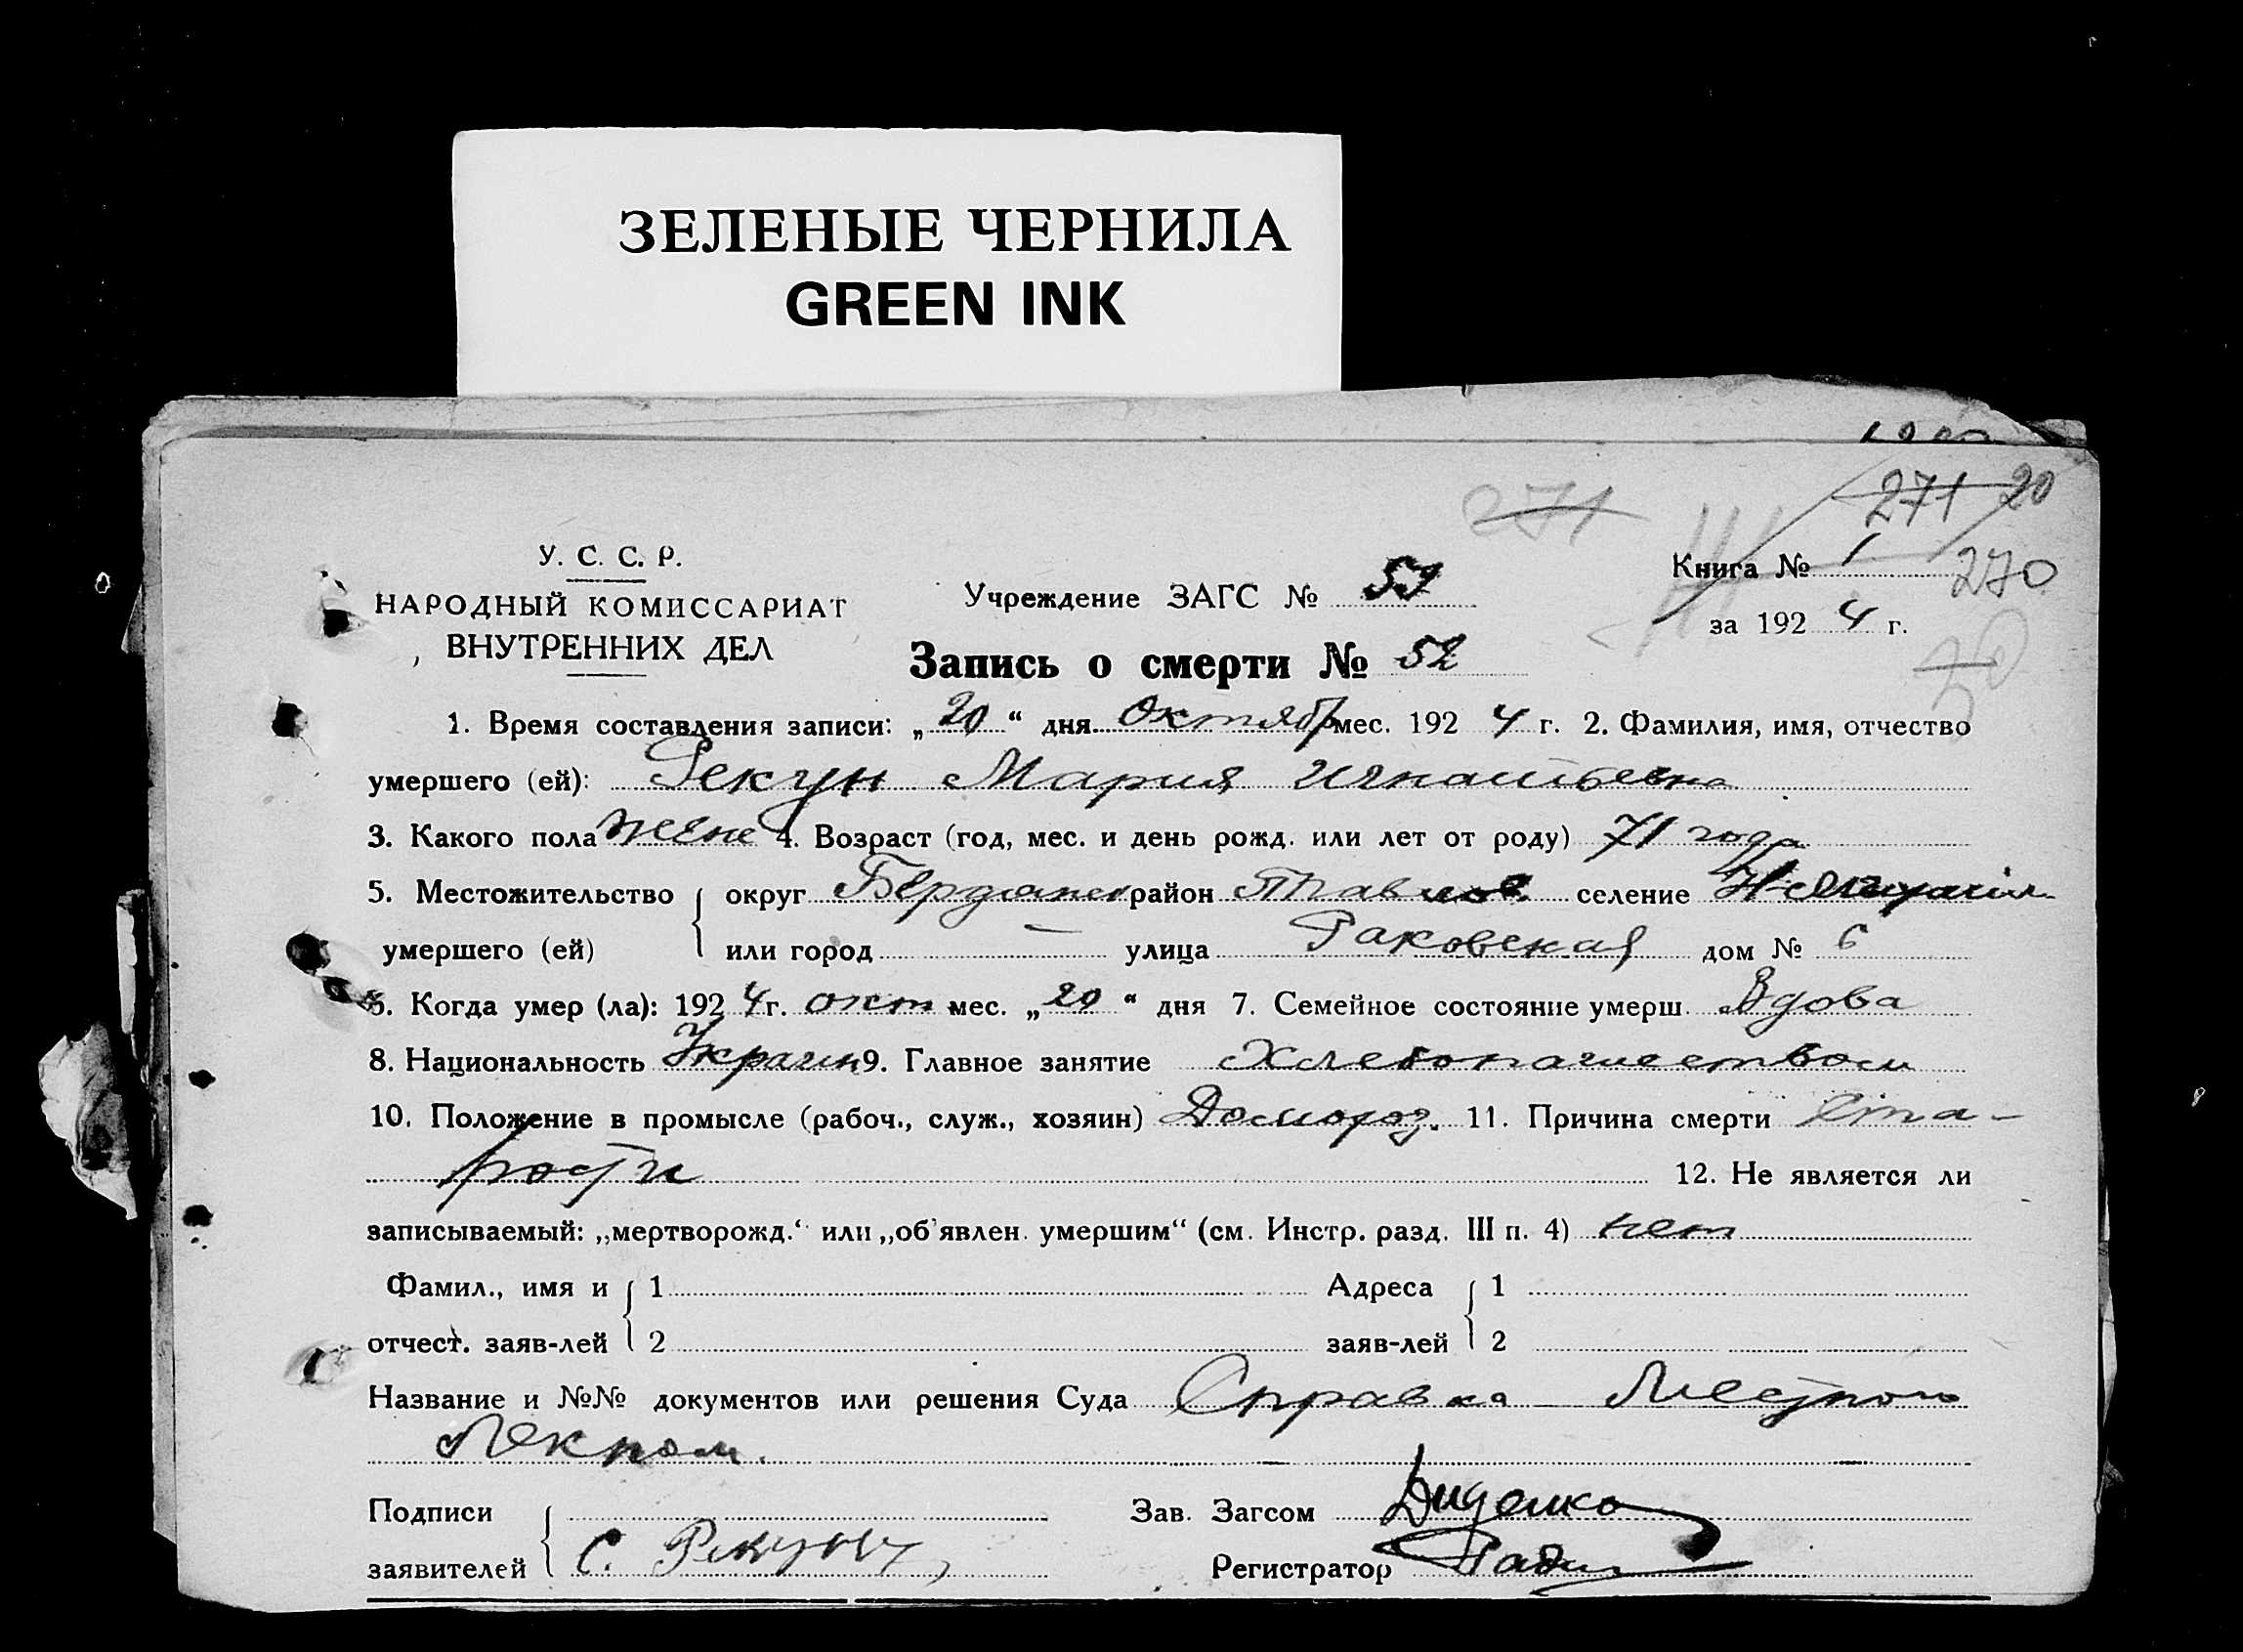 ЗЕЛЕНЫЕ ЧЕРНИЛА
GREEN INK
271 20
271
У. С. С. Р.
НАРОДНЫЙ КОМИССАРИАТ
ВНУТРЕННИХ ДЕЛ
Учреждение ЗАГС №
Книга № 1 270
за 1924 г.
Запись о смерти № 52
1. Время составления записи: „20“ дня Октябр мес. 1924 г. 2. Фамилия, имя, отчество
умершего (ей): Рекун Мария Игнатьевна
3. Какого пола жене 4. Возраст (год, мес. и день рожд. или лет от роду) 71 года
5. Местожительство округ Бердянск район селение
умершего (ей) или город — улица Раковская дом № 6
6. Когда умер (ла): 1924 г. окт мес. „20“ дня 7. Семейное состояние умерш. Вдова
8. Национальность Украин 9. Главное занятие Хлебопашеством
10. Положение в промысле (рабоч., служ., хозяин) Домохоз. 11. Причина смерти Ста-
рости 12. Не является ли
записываемый: „мертворожд.“ или „об'явлен. умершим“ (см. Инстр. разд. III п. 4) нет
Фамил., имя и 1 Адреса 1
отчест. заяв-лей 2 заяв-лей 2
Название и №№ документов или решения Суда Справка Местного
Лекпом.
Подписи Зав. Загсом Диденко
заявителей С. Регистратор